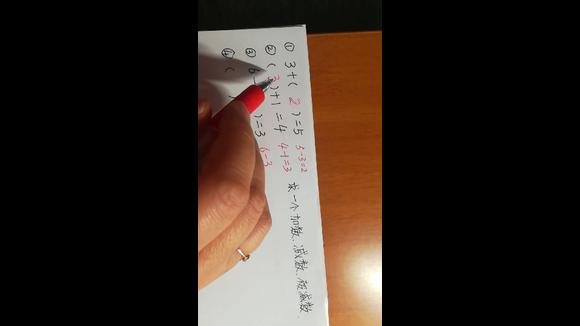 ① 3+( 2 )=5 5-3=2
② ( 3 )+1=4 4-1=3
③ 6-( )=3 6-3
④ (
求一个加数、减数、被减数.